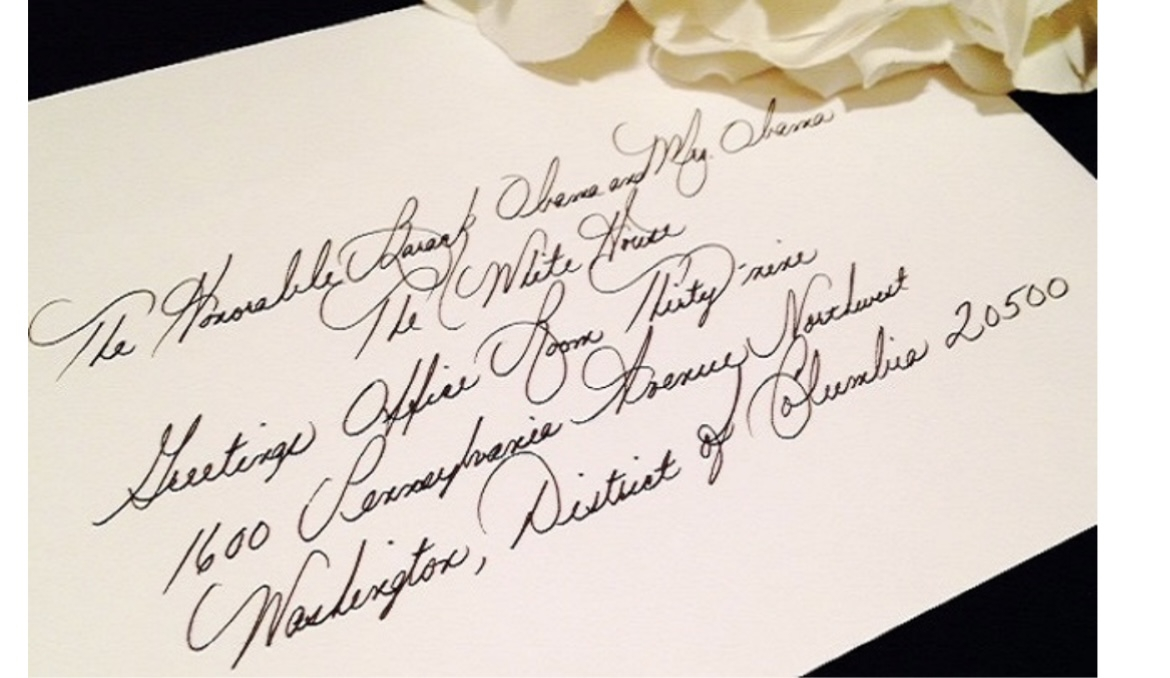 The Honorable Barack Obama and Mrs. Obama
The White House
Greetings Office Room Thirty-nine
1600 Pennsylvania Avenue Northwest
Washington, District of Columbia 20500